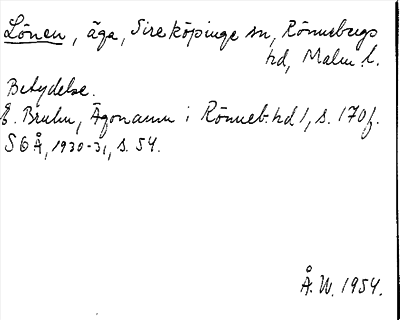 Lönen, äga, Sireköpinge sn, Rönnebergs
hd, Malm l.
Betydelse.
E. Bruhn, Ägonamn i Rönneb. hd 1, s. 170 f.
SGÅ, 1930-31, s. 54.
Å. W. 1954.